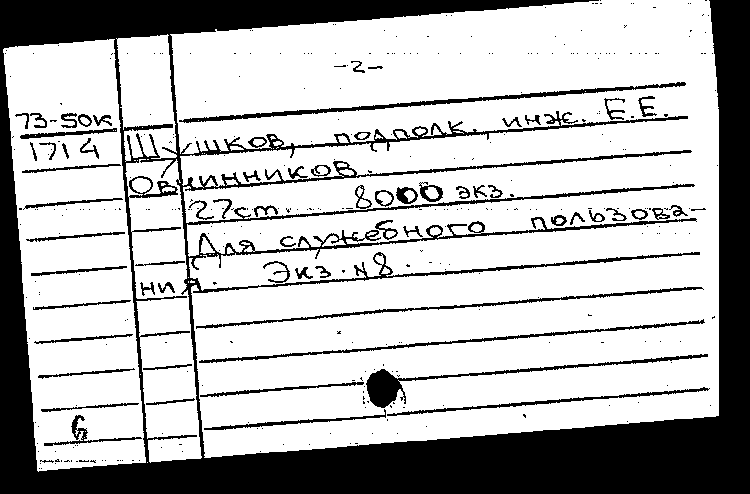 -2-
73-50к
1714 Шушков, подполк., инж. Е.Е.
Овчинников.
27ст. 8000 экз.
Для служебного пользова-
ния. Экз. №8.
6